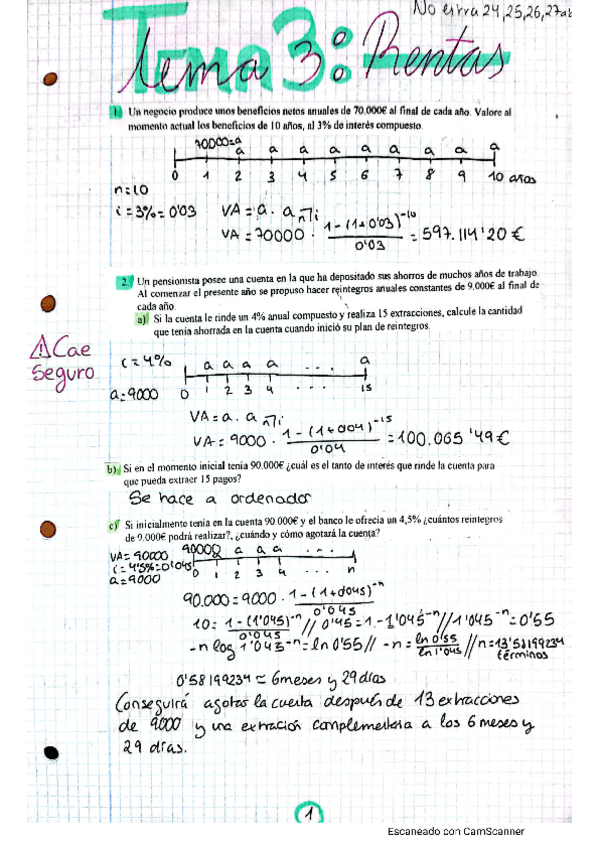 No entra 24,25,26,27
Tema 3: Rentas
1. Un negocio produce unos beneficios netos anuales de 70.000€ al final de cada año. Valore al
momento actual los beneficios de 10 años, al 3% de interés compuesto.
70000=a
a a a a a a a a a
0 1 2 3 4 5 6 7 8 9 10 años
n=10
i=3%=0'03 VA=a. a n¬i
VA=70000 · 1-(1+0'03)^-10 / 0'03 = 597.114'20€
2. Un pensionista posee una cuenta en la que ha depositado sus ahorros de muchos años de trabajo.
Al comenzar el presente año se propuso hacer reintegros anuales constantes de 9.000€ al final de
cada año.
a) Si la cuenta le rinde un 4% anual compuesto y realiza 15 extracciones, calcule la cantidad
que tenia ahorrada en la cuenta cuando inició su plan de reintegros.
⚠Cae
seguro
i=4% a a a a ... a
a=9000 0 1 2 3 4 ... 15
VA=a. a n¬i
VA=9000 · 1-(1+0'04)^-15 / 0'04 =100.065'49€
b) Si en el momento inicial tenia 90.000€ ¿cuál es el tanto de interés que rinde la cuenta para
que pueda extraer 15 pagos?
Se hace a ordenador
c) Si inicialmente tenia en la cuenta 90.000€ y el banco le ofrecia un 4,5% ¿cuántos reintegros
de 9.000€ podrá realizar?, ¿cuándo y cómo agotará la cuenta?
VA=90000 90000 a a a ...
i=4'5%=0'045 0 1 2 3 4 ... n
a=9000
90.000=9000 · 1-(1+0'045)^-n / 0'045
10= 1-(1'045)^-n / 0'045 // 0'45=1-1'045^-n // 1'045^-n=0'55
-n log 1'045^-n=ln 0'55 // -n= ln 0'55 / ln 1'045 // n=13'58199234
términos
0'58199234 ≈ 6 meses y 29 días
Conseguirá agotar la cuenta después de 13 extracciones
de 9000 y una extracción complementaria a los 6 meses y
29 días.
1
Escaneado con CamScanner